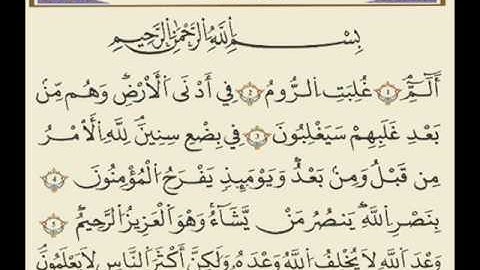 بِسْمِ ٱللَّهِ ٱلرَّحْمَٰنِ ٱلرَّحِيمِ
الٓمٓ ١ غُلِبَتِ ٱلرُّومُ ٢ فِىٓ أَدْنَى ٱلْأَرْضِ وَهُم مِّنۢ
بَعْدِ غَلَبِهِمْ سَيَغْلِبُونَ ٣ فِى بِضْعِ سِنِينَۗ لِلَّهِ ٱلْأَمْرُ
مِن قَبْلُ وَمِنۢ بَعْدُۚ وَيَوْمَئِذٍ يَفْرَحُ ٱلْمُؤْمِنُونَ ٤
بِنَصْرِ ٱللَّهِۚ يَنصُرُ مَن يَشَآءُۖ وَهُوَ ٱلْعَزِيزُ ٱلرَّحِيمُ ٥
وَعْدَ ٱللَّهِۖ لَا يُخْلِفُ ٱللَّهُ وَعْدَهُۥ وَلَٰكِنَّ أَكْثَرَ ٱلنَّاسِ لَا يَعْلَمُونَ